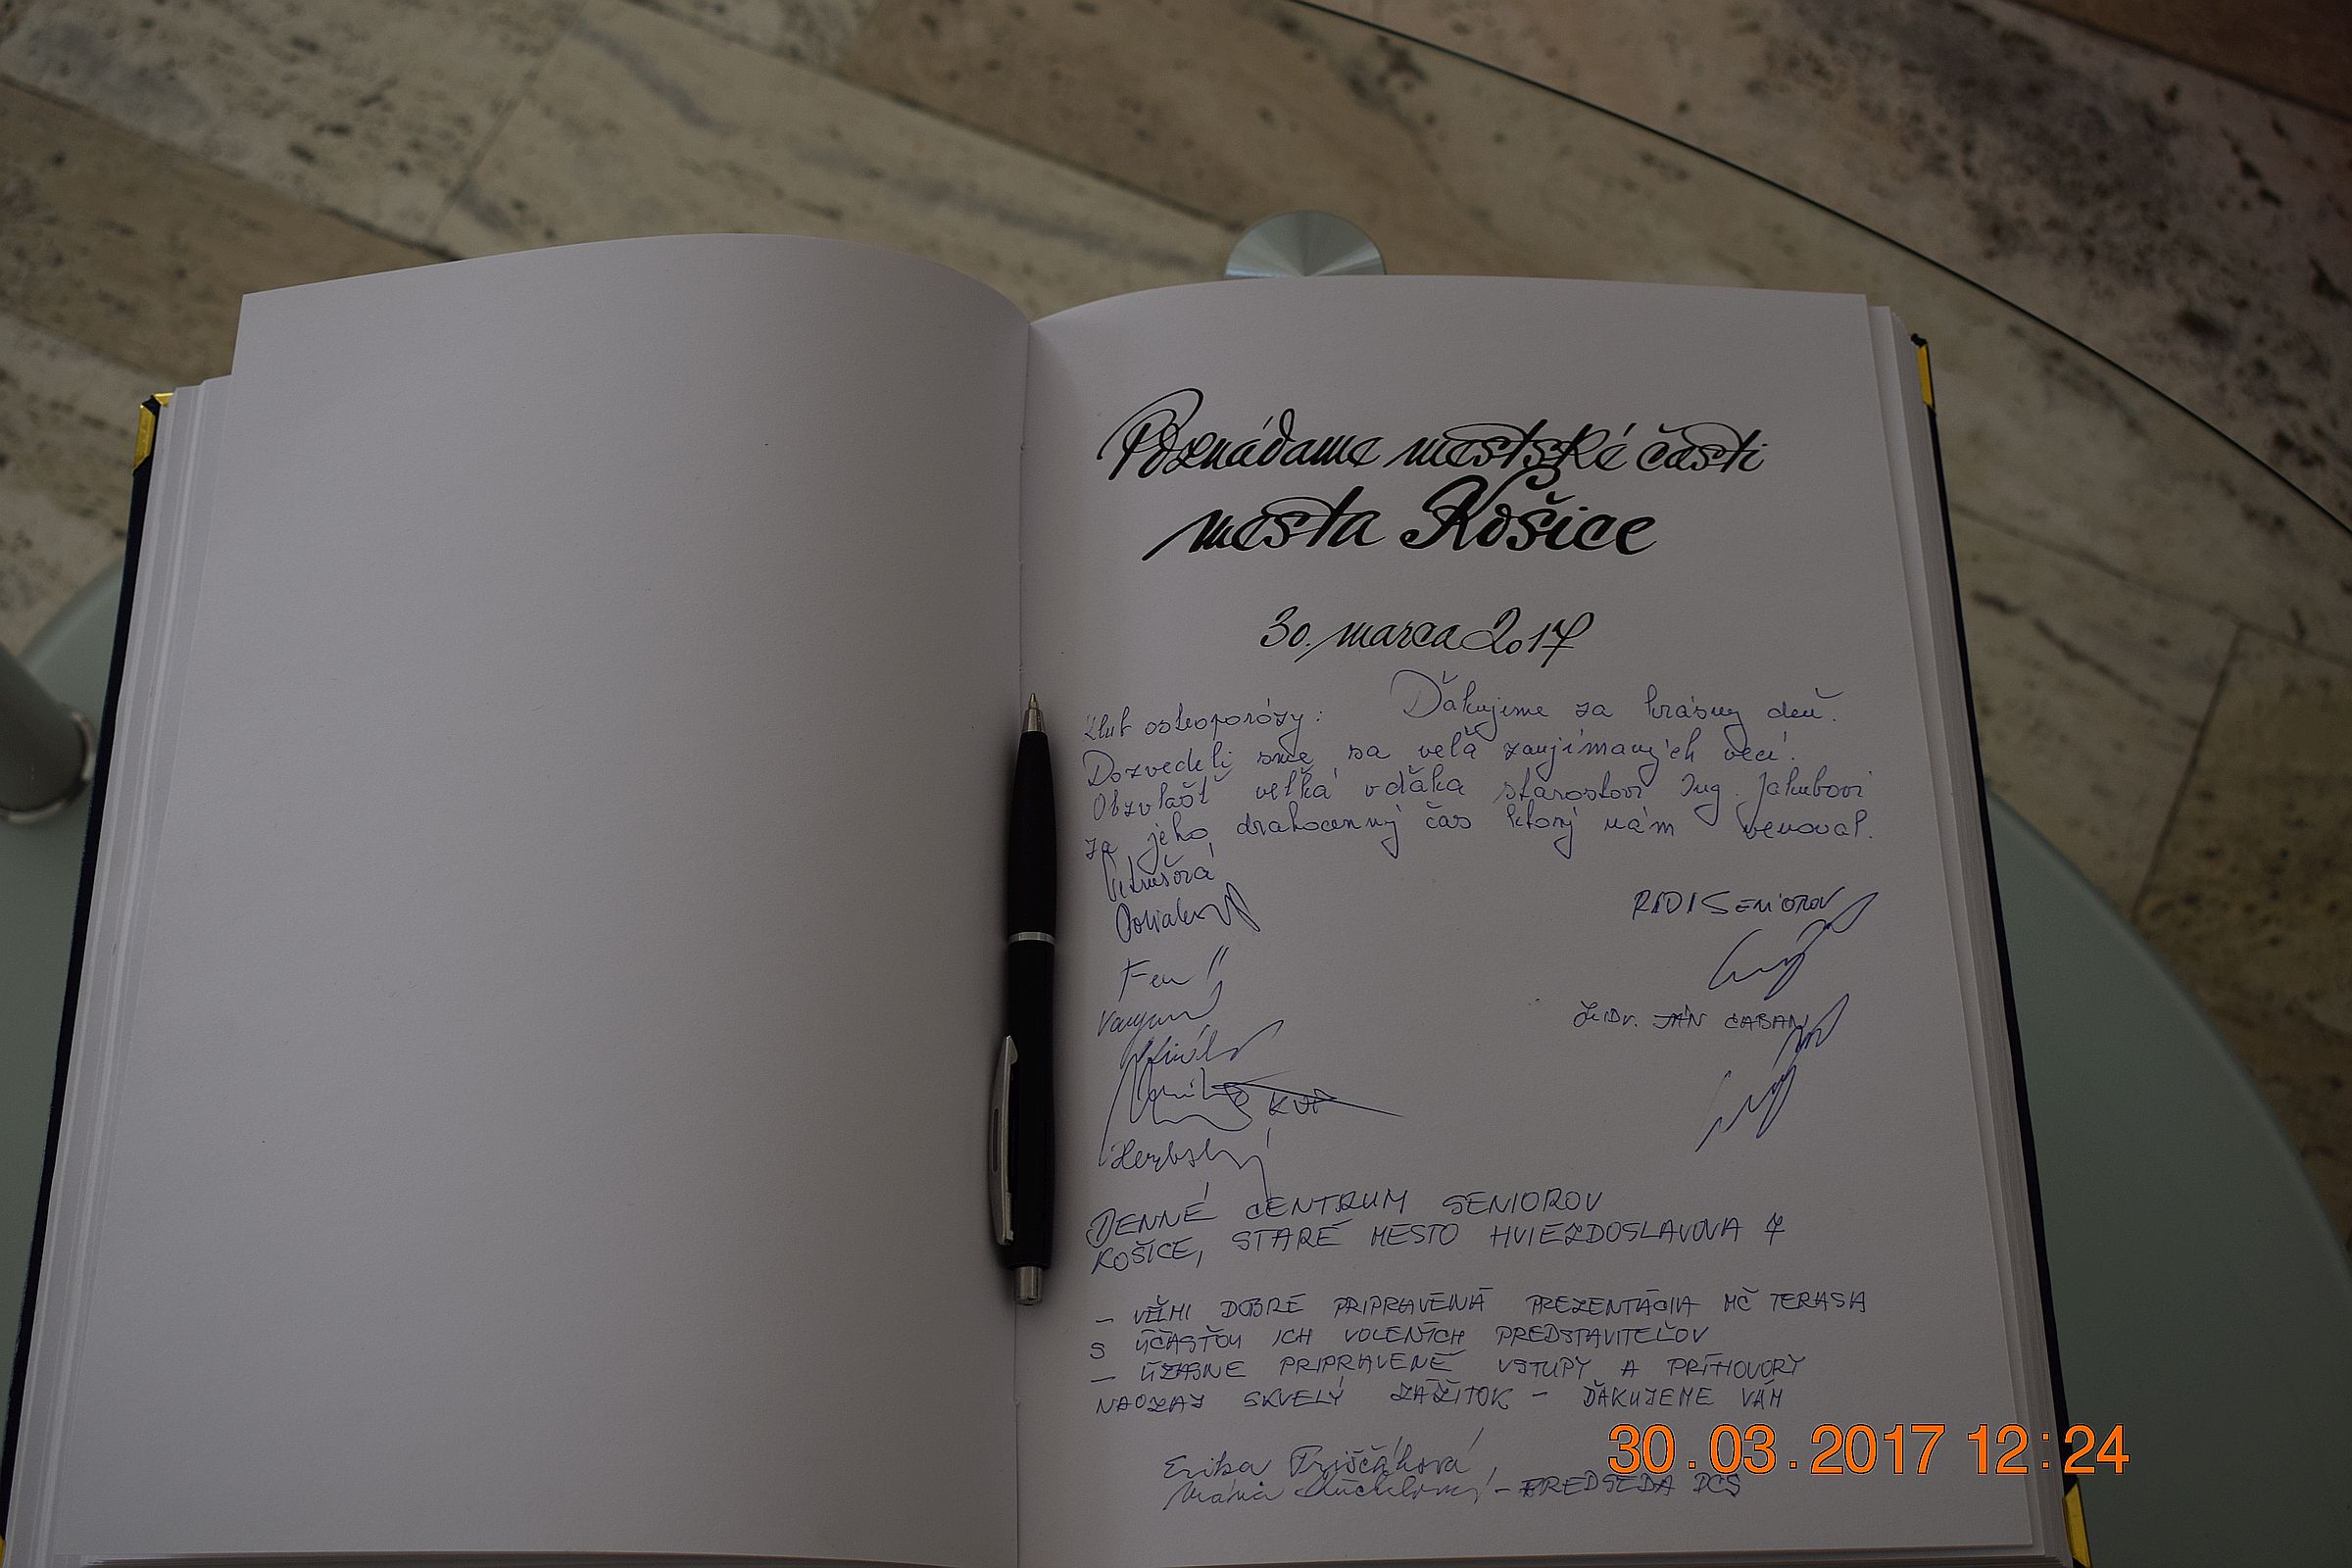 Poznávame mestské časti
mesta Košice
30. marca 2017
Klub osteoporózy: Ďakujeme za krásny deň.
Dozvedeli sme sa veľa zaujímavých vecí.
Obzvlášť veľká vďaka starostovi Ing. Jakubovi
za jeho drahocenný čas ktorý nám venoval.
RADA SENIOROV
JUDr. JÁN ČABAN
DENNÉ CENTRUM SENIOROV
KOŠICE, STARÉ MESTO HVIEZDOSLAVOVA 7
- VEĽMI DOBRE PRIPRAVENÁ PREZENTÁCIA MČ TERASA
S ÚČASŤOU ICH VOLENÝCH PREDSTAVITEĽOV
- ÚŽASNE PRIPRAVENÉ VSTUPY A PRÍHOVORY
NAOZAJ SKVELÝ ZÁŽITOK - ĎAKUJEME VÁM
Erika
Mária - PREDSEDA DCS
30.03.2017 12:24